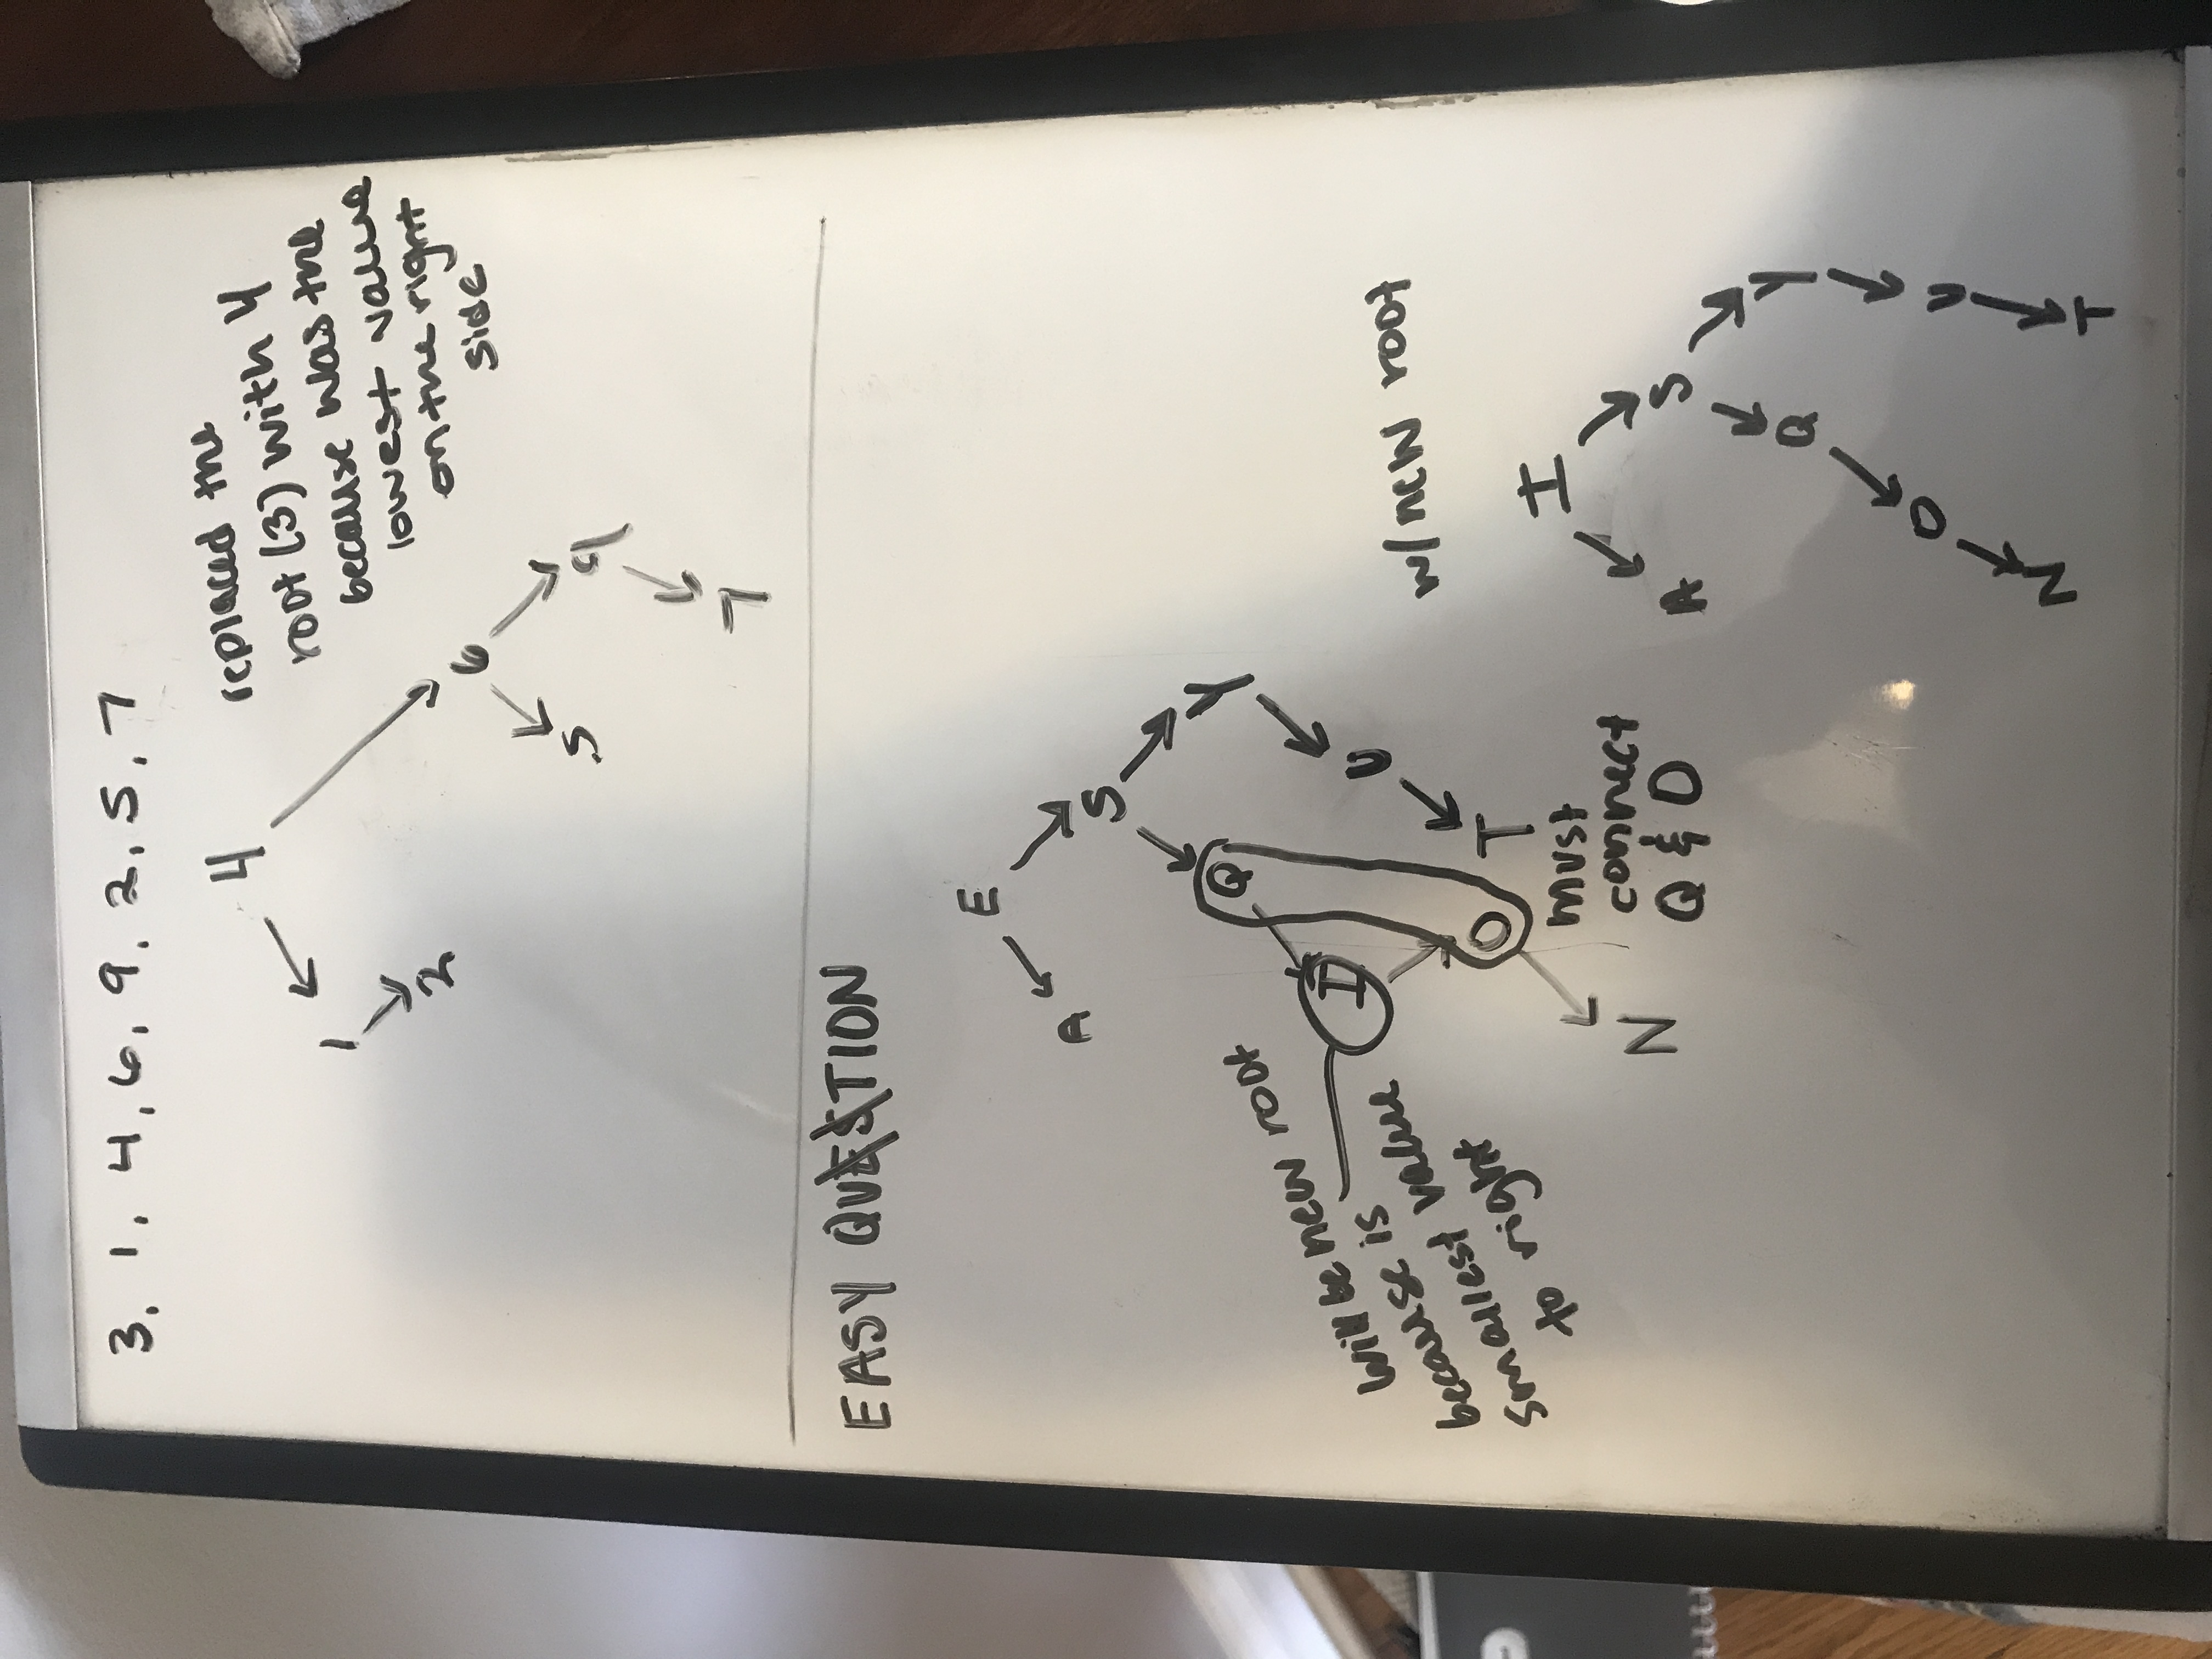 3, 1, 4, 6, 9, 2, 5, 7
4
replaced the
root (3) with 4
because was the
lowest value
on the right
side
1
2
6
5
9
7
EASY QUESTION
E
A
S
Q
Y
will be new root
because is
smallest value
to right
I
U
O
T
N
must
connect
Q & O
w/new root
I
A
S
Q
Y
O
U
N
T